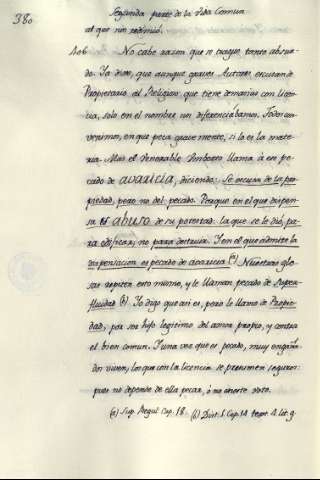 380
Segunda parte de la Vida Comun
al que nin redimió.
406 No cabe razon que se trague, tanto absur-
do. Ya dixe, que aunque graves Autores escusan de
Propietario al Religioso que tiene demasias con licen-
cia, solo en el nombre nos diferenciabamos. Todos con-
venimos, en que peca gravemente, si lo es la mate-
ria. Mas el Venerable Umberto llama á ese pe-
cado de avaricia, diciendo: Se escusa de la pro-
piedad, pero no del pecado. Porque en el que dispen-
sa es abuso de su potestad: la que se le dió, pa-
ra edificar, no para destruir. Y en el que admite la
dispensacion es pecado de avaricia (a) Nuestras glo-
sas repiten esto mismo, y le llaman pecado de super-
fluidad (b) Yo digo que asi es, pero le llamo de Propie-
dad, por ser hijo legitimo del amor propio, y contra
el bien comun. Y una vez que es pecado, muy engaña-
dos viven, los que con la licencia se presumen seguros:
pues no depende de ella pecar, ó no
(a) Sup. Regul Cap. 18. (b) Dist. 1. Cap. 14 text. 4. lit. g.